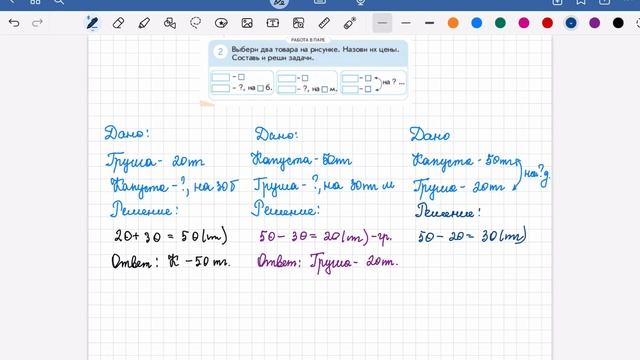 РАБОТА В ПАРЕ
2 Выбери два товара на рисунке. Назови их цены.
Составь и реши задачи.
– ?, на б.
– ?, на м.
на ? ...
Дано:
Груша - 20т
Капуста - ?, на 30 б
Решение:
20 + 30 = 50 (т)
Ответ: К - 50 тг.
Дано:
Капуста - 50т
Груша - ?, на 30т м
Решение:
50 - 30 = 20 (т) - гр.
Ответ: Груша - 20т.
Дано
Капуста - 50т
Груша - 20т
на ? д
Решение:
50 - 20 = 30 (т)